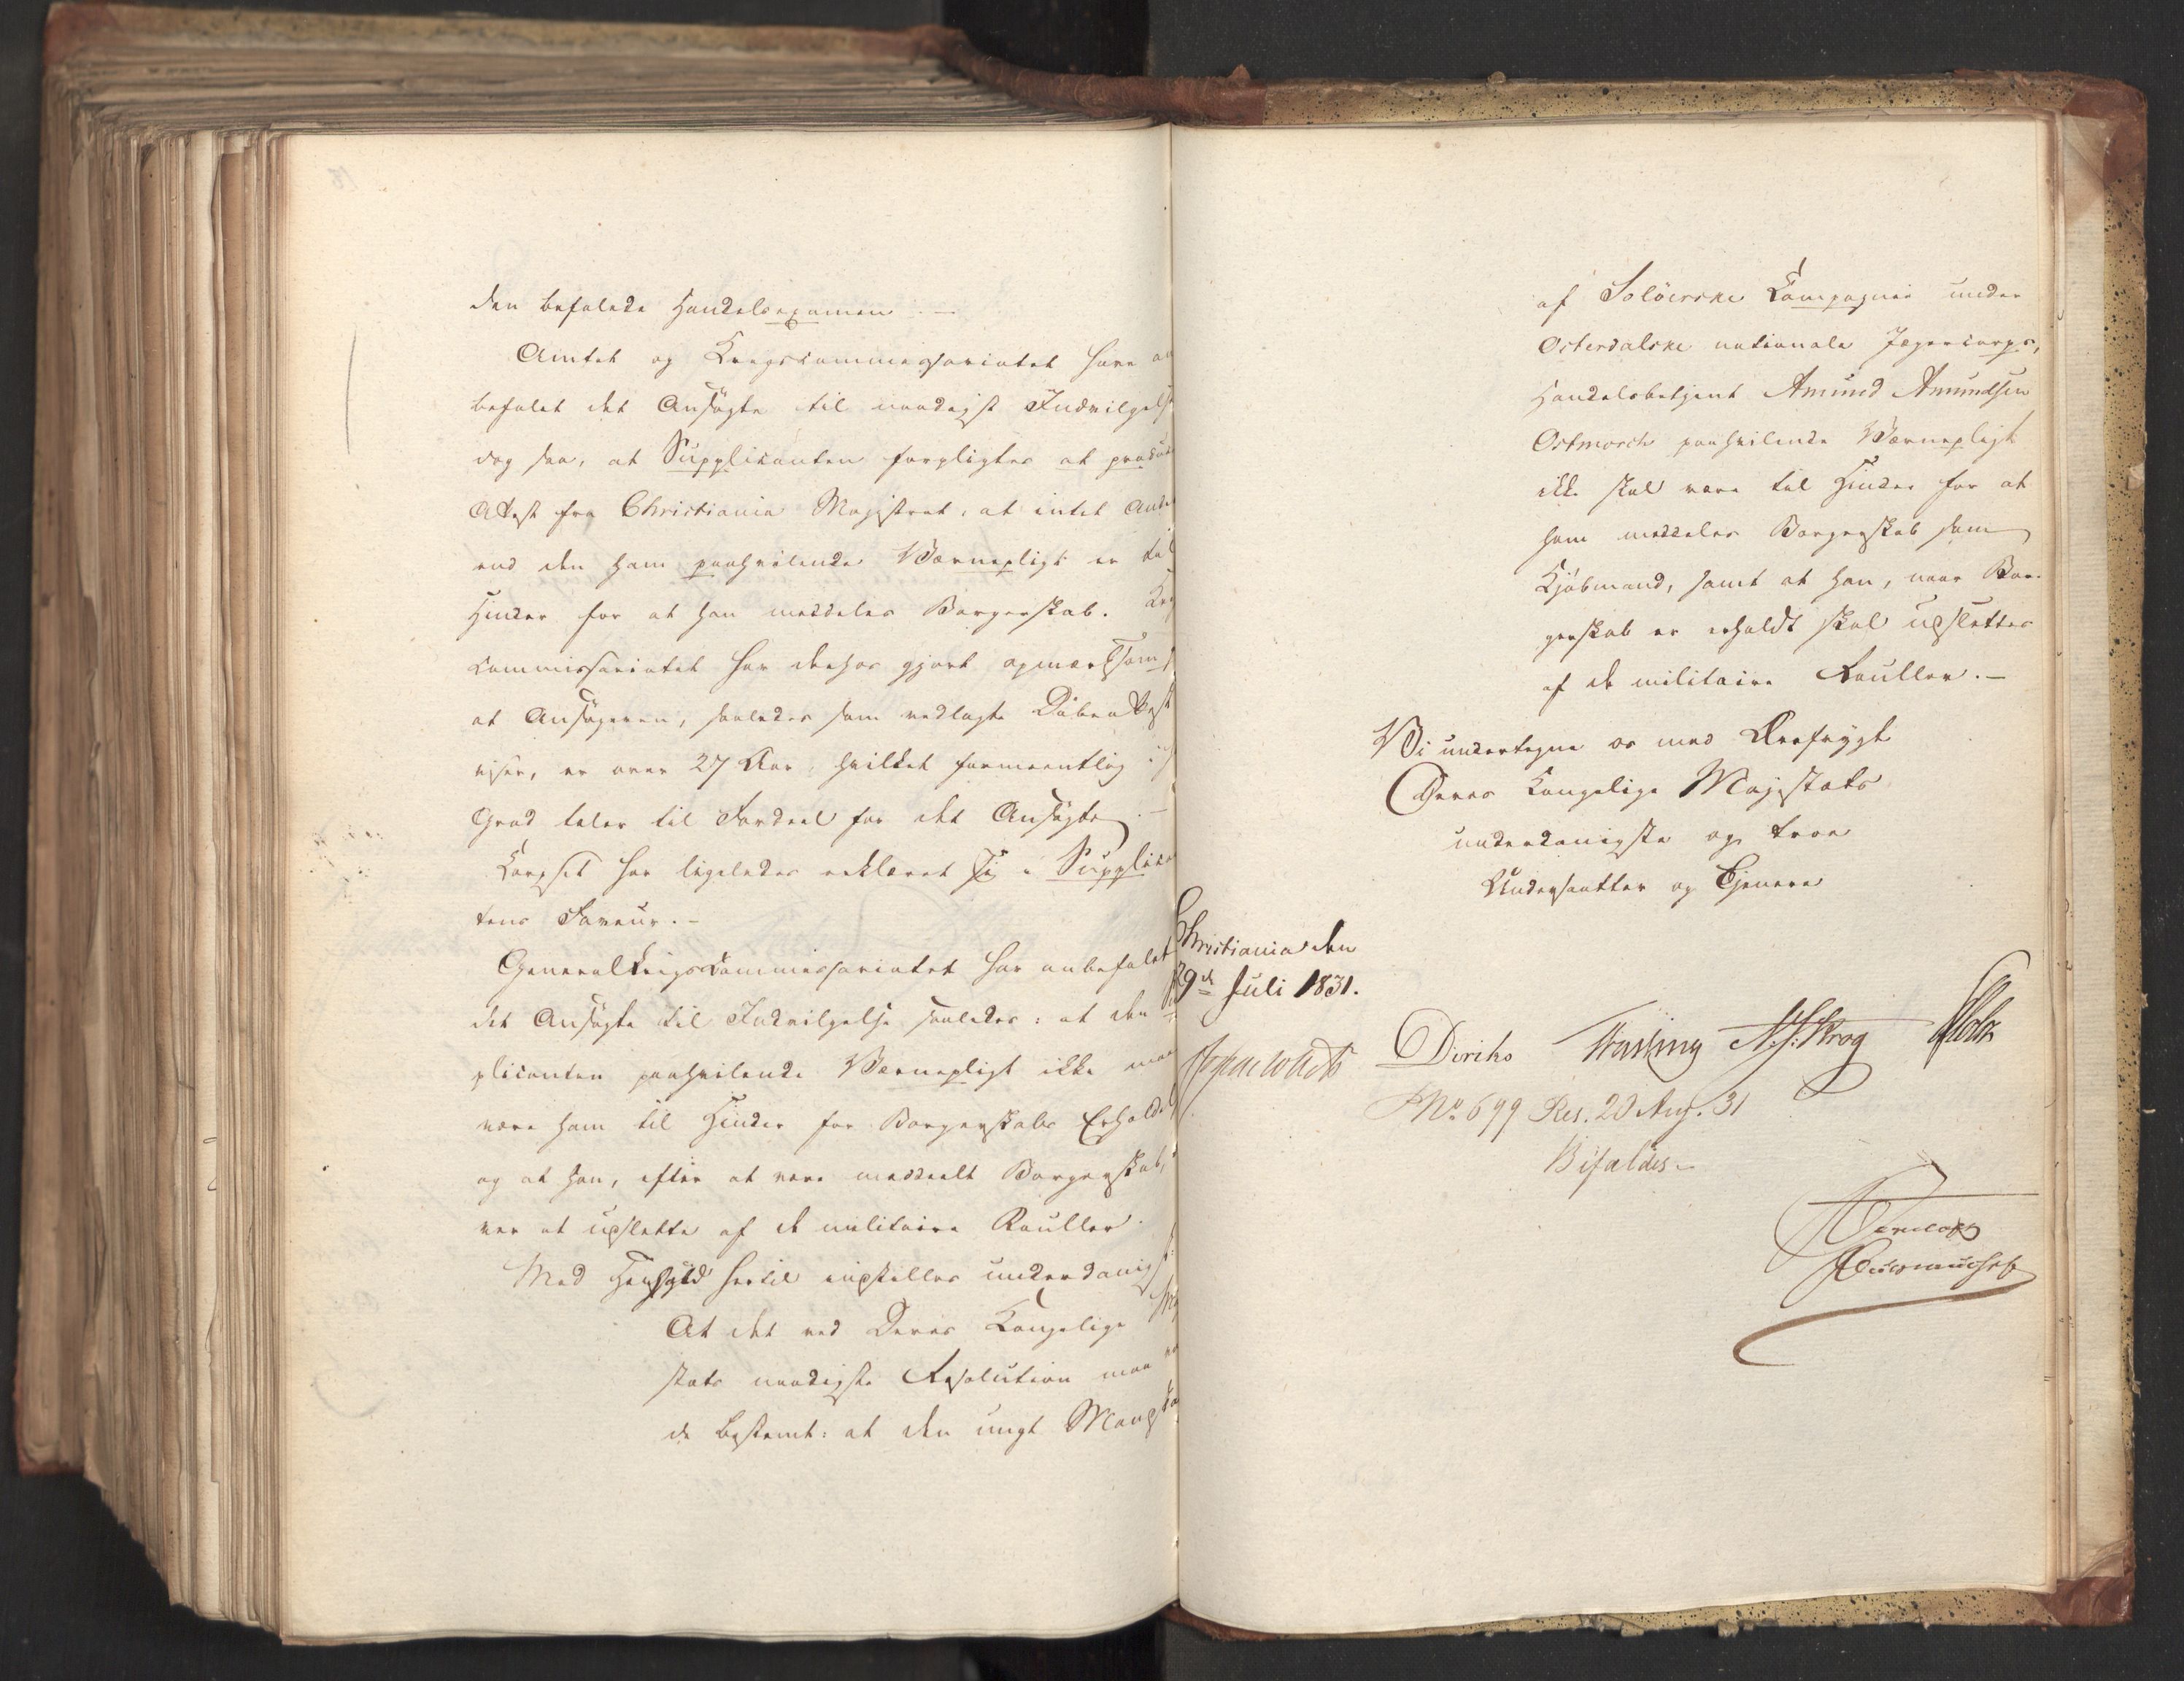 den befalede Handelsexamen. —
Amtet og Krigscommissariatet have an
befalet det Ansøgte til naadigst Indvilgelse
dog saa, at Supplikanten forpligtes at producere
Attest fra Christiania Magistrat, at intet Andet
end den ham paahvilende Værnepligt er til
Hinder for at han meddeles Borgerskab. Krigs
commissariatet har derhos gjort opmærksom
at Ansøgeren, saaledes som vedlagte Døbeattest
viser, er over 27 Aar, hvilket formeentlig i
Grad taler til Fordeel for det Ansøgte. —
Corpset har ligeledes erklæret sig i Supplikan
tens Faveur. —
Generalkrigscommissariatet har anbefalet
det Ansøgte til Indvilgelse saaledes: at den
plicanten paahvilende Værnepligt ikke maa
være ham til Hinder for Borgerskabs Erholdelse
og at han, efter at være meddeelt Borgerskab,
ver at udslette af de militaire Rouller.
Med Hensyn hertil indstilles underdanigst:
At det ved Deres Kongelige Maj
stæts naadigste Resolution maa
de bestemt: at den ungt Mandskab
af Solöerske Compagnie under
Österdalske nationale Jægercorps,
Handelsbetjent Amund Amundsen
Ostmoech paahvilende Værnepligt
ikke skal være til Hinder for at
ham meddeles Borgerskab som
Kjøbmand, samt at han, naar Bor-
gerskab er erholdt skal udslettes
af de militaire Rouller. —
Vi undertegne os med Ærefrygt
Deres Kongelige Majestæts
underdanigste og troe
Undersaatter og Tjenere
Christiania den
29de Juli 1831.
Diriks Fasting N. J. Krog Holst
No. 699 Res. 20 Aug. 31
Bifaldes.